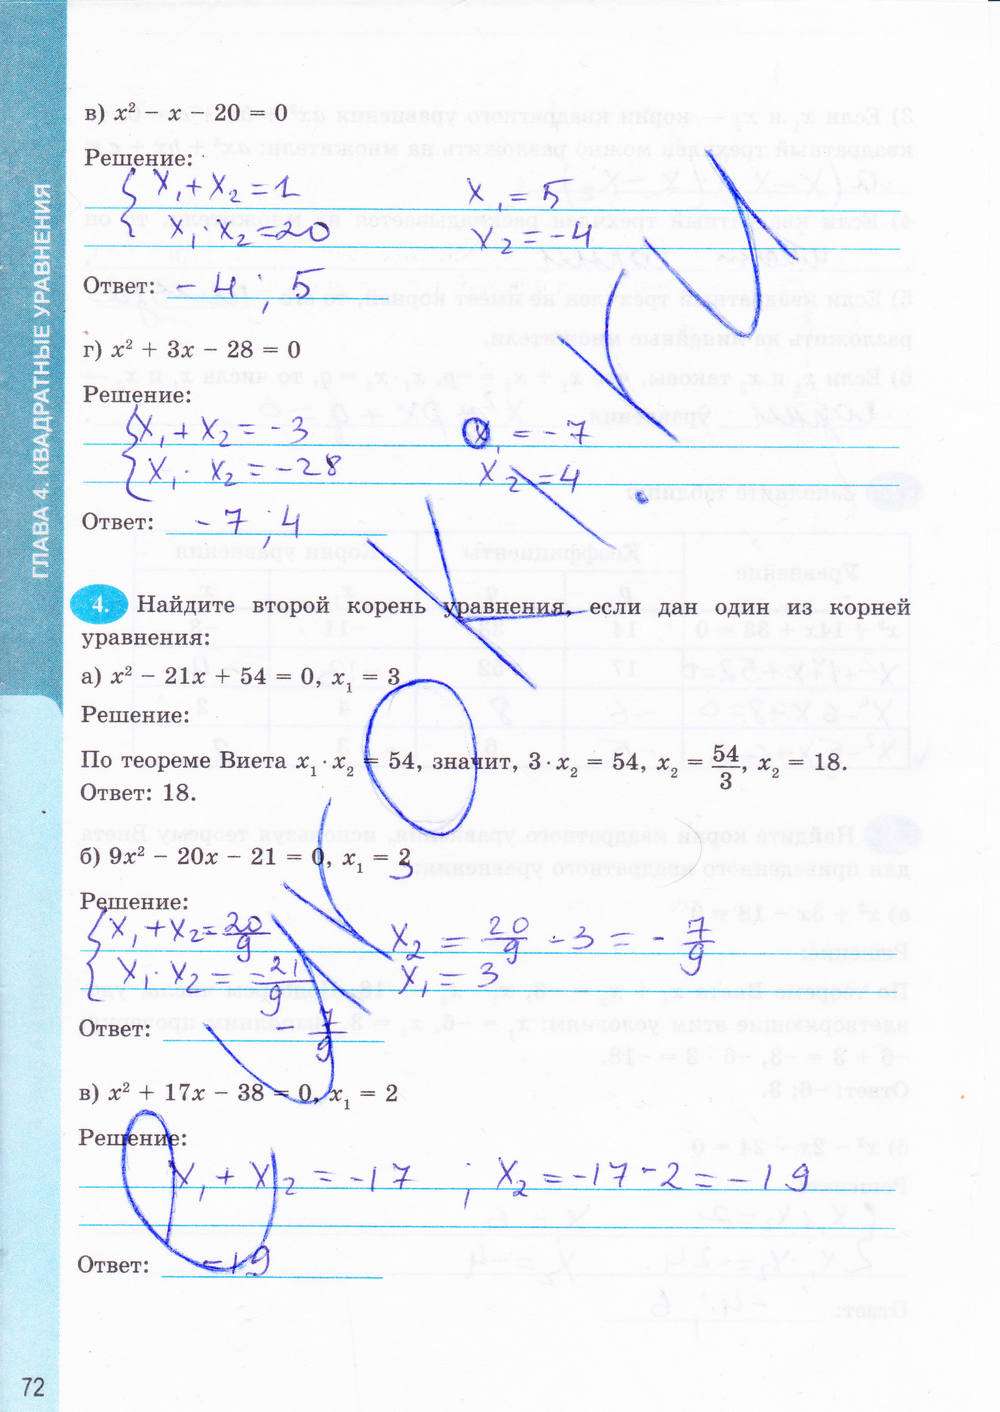 ГЛАВА 4. КВАДРАТНЫЕ УРАВНЕНИЯ
в) x² − x − 20 = 0
Решение:
x₁ + x₂ = 1 x₁ = 5
x₁ · x₂ = 20 x₂ = −4
Ответ: −4; 5
г) x² + 3x − 28 = 0
Решение:
x₁ + x₂ = −3 x₁ = −7
x₁ · x₂ = −28 x₂ = 4
Ответ: −7; 4
4. Найдите второй корень уравнения, если дан один из корней
уравнения:
а) x² − 21x + 54 = 0, x₁ = 3
Решение:
По теореме Виета x₁ · x₂ = 54, значит, 3 · x₂ = 54, x₂ = 54/3, x₂ = 18.
Ответ: 18.
б) 9x² − 20x − 21 = 0, x₁ = 3
Решение:
x₁ + x₂ = 20/9 x₂ = 20/9 − 3 = −7/9
x₁ · x₂ = −21/9 x₁ = 3
Ответ: −7/9
в) x² + 17x − 38 = 0, x₁ = 2
Решение:
x₁ + x₂ = −17; x₂ = −17 − 2 = −19
Ответ: −19
72